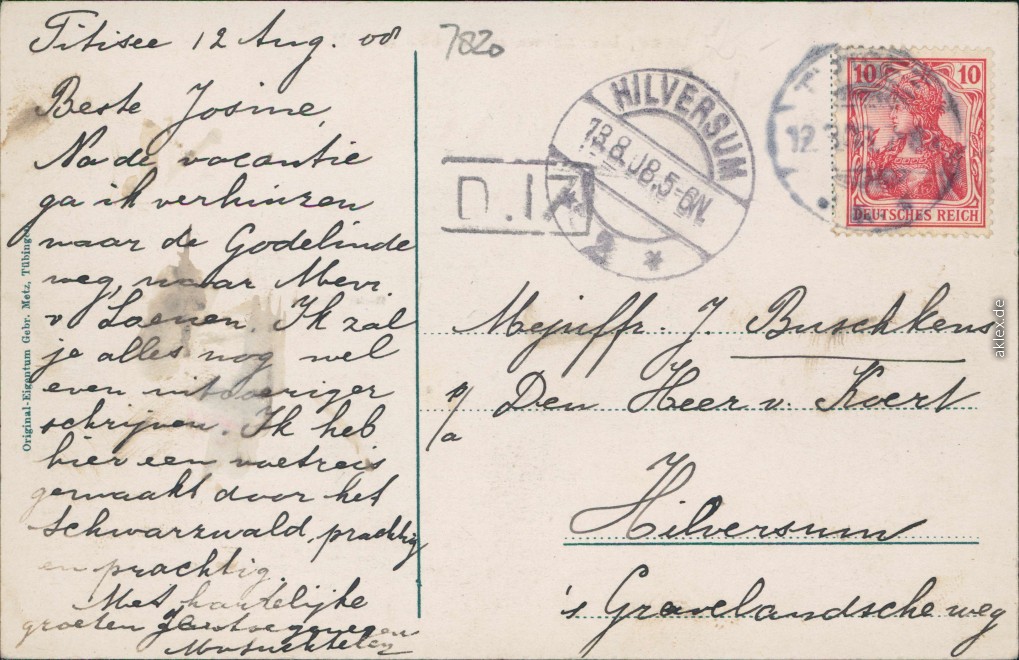 Titisee 12 Aug. 08
7820
Beste Josine,
Na de vacantie
ga ik verhuizen
naar de Godelinde
weg, naar Mevr.
v Loenen. Ik zal
je alles nog wel
even uitvoeriger
schrijven. Ik heb
hier een voetreis
gemaakt door het
Schwarzwald, prachtig
en prachtig.
Met hartelijke
groeten
Original-Eigentum Gebr. Metz, Tübingen
HILVERSUM
13.8.08.5-6N.
D.I.
10 10
DEUTSCHES REICH
Mejuffr. J. Buschkens
p/a Den Heer v. Koert
Hilversum
's Gravelandsche weg
aklex.de